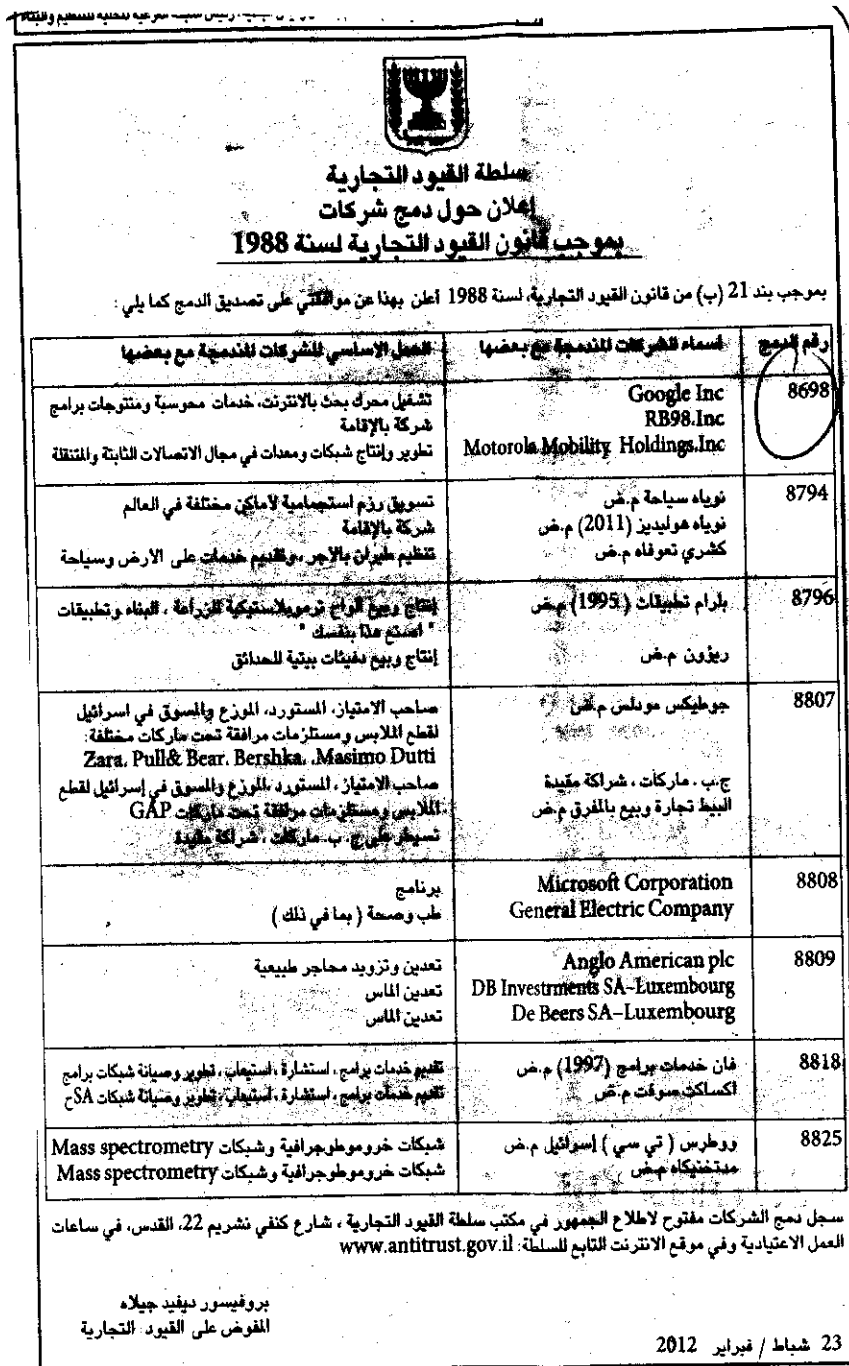 سلطة القيود التجارية
إعلان حول دمج شركات
بموجب قانون القيود التجارية لسنة 1988
بموجب بند 21 (ب) من قانون القيود التجارية، لسنة 1988 أعلن بهذا عن موافقتي على تصديق الدمج كما يلي :
رقم الدمج
اسماء الشركات المندمجة مع بعضها
العمل الاساسي للشركات المندمجة مع بعضها
8698
Google Inc
RB98.Inc
Motorola Mobility Holdings.Inc
تشغيل محرك بحث بالانترنت، خدمات محوسبة ومنتوجات برامج
شركة بالإقامة
تطوير وإنتاج شبكات ومعدات في مجال الاتصالات الثابتة والمتنقلة
8794
نوياه سياحة م.ض
نوياه هوليديز (2011) م.ض
كشري تعوفاه م.ض
تسويق رزم استجمامية لأماكن مختلفة في العالم
شركة بالإقامة
تنظيم طيران بالأجر ، وتقديم خدمات على الارض وسياحة
8796
بلرام تطبيقات (1995) م.ض
ريؤون م.ض
إنتاج وبيع الواح ترموبلاستيكية للزراعة ، البناء وتطبيقات
" اصنع هذا بنفسك "
إنتاج وبيع دفيئات بيتية للحدائق
8807
جوطيكس مودلس م.ض
ج.ب . ماركات ، شراكة مقيدة
البيط تجارة وبيع بالمفرق م.ض
صاحب الامتياز، المستورد، الموزع والمسوق في اسرائيل
لقطع الملابس ومستلزمات مرافقة تحت ماركات مختلفة:
Zara. Pull& Bear. Bershka. .Masimo Dutti
صاحب الامتياز ، المستورد ،الموزع والمسوق في إسرائيل لقطع
الملابس ومستلزمات مرافقة تحت ماركات GAP
تسيطر على ج. ب. ماركات ، شراكة مقيدة
8808
Microsoft Corporation
General Electric Company
برنامج
طب وصحة ( بما في ذلك )
8809
Anglo American plc
DB Investments SA-Luxembourg
De Beers SA-Luxembourg
تعدين وتزويد محاجر طبيعية
تعدين الماس
تعدين الماس
8818
فان خدمات برامج (1997) م.ض
اكساكت سوفت م.ض
تقديم خدمات برامج ، استشارة ، استيعاب ، تطوير وصيانة شبكات برامج
تقديم خدمات برامج ، استشارة ، استيعاب، تطوير وصيانة شبكات SAح
8825
ووطرس ( تي سي ) إسرائيل م.ض
مدتخنيكاه م.ض
شبكات خروموطوجرافية وشبكات Mass spectrometry
شبكات خروموطوجرافية وشبكات Mass spectrometry
سجل دمج الشركات مفتوح لاطلاع الجمهور في مكتب سلطة القيود التجارية ، شارع كنفي نشريم 22، القدس، في ساعات
العمل الاعتيادية وفي موقع الانترنت التابع للسلطة: www.antitrust.gov.il
بروفيسور ديفيد جيلاه
المفوض على القيود التجارية
23 شباط / فبراير 2012